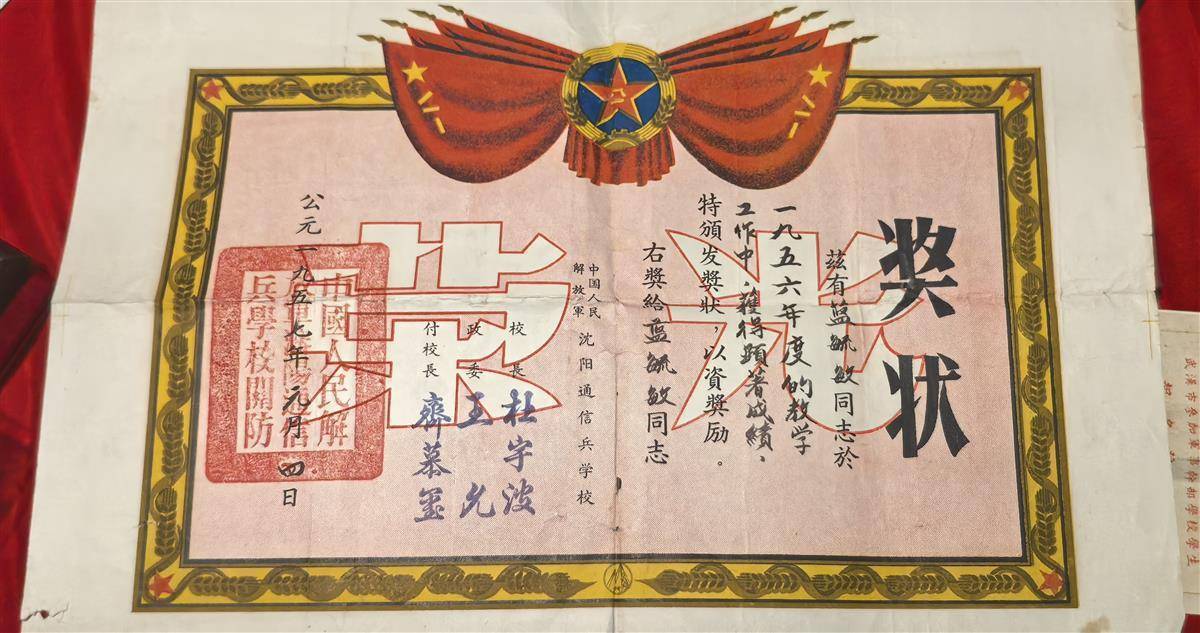 奖状
兹有蓝毓敏同志於
一九五六年度的教学
工作中,獲得顕著成績,
特頒发奖状,以資奖励。
右奖给蓝毓敏同志
中国人民
解放軍
沈阳通信兵学校
校長 杜宇波
政委 王允
付校長 齊慕玺
公元一九五七年元月四日
光荣
中國人民解
兵學校關防
八一
八一
武漢市
幹部學校學生